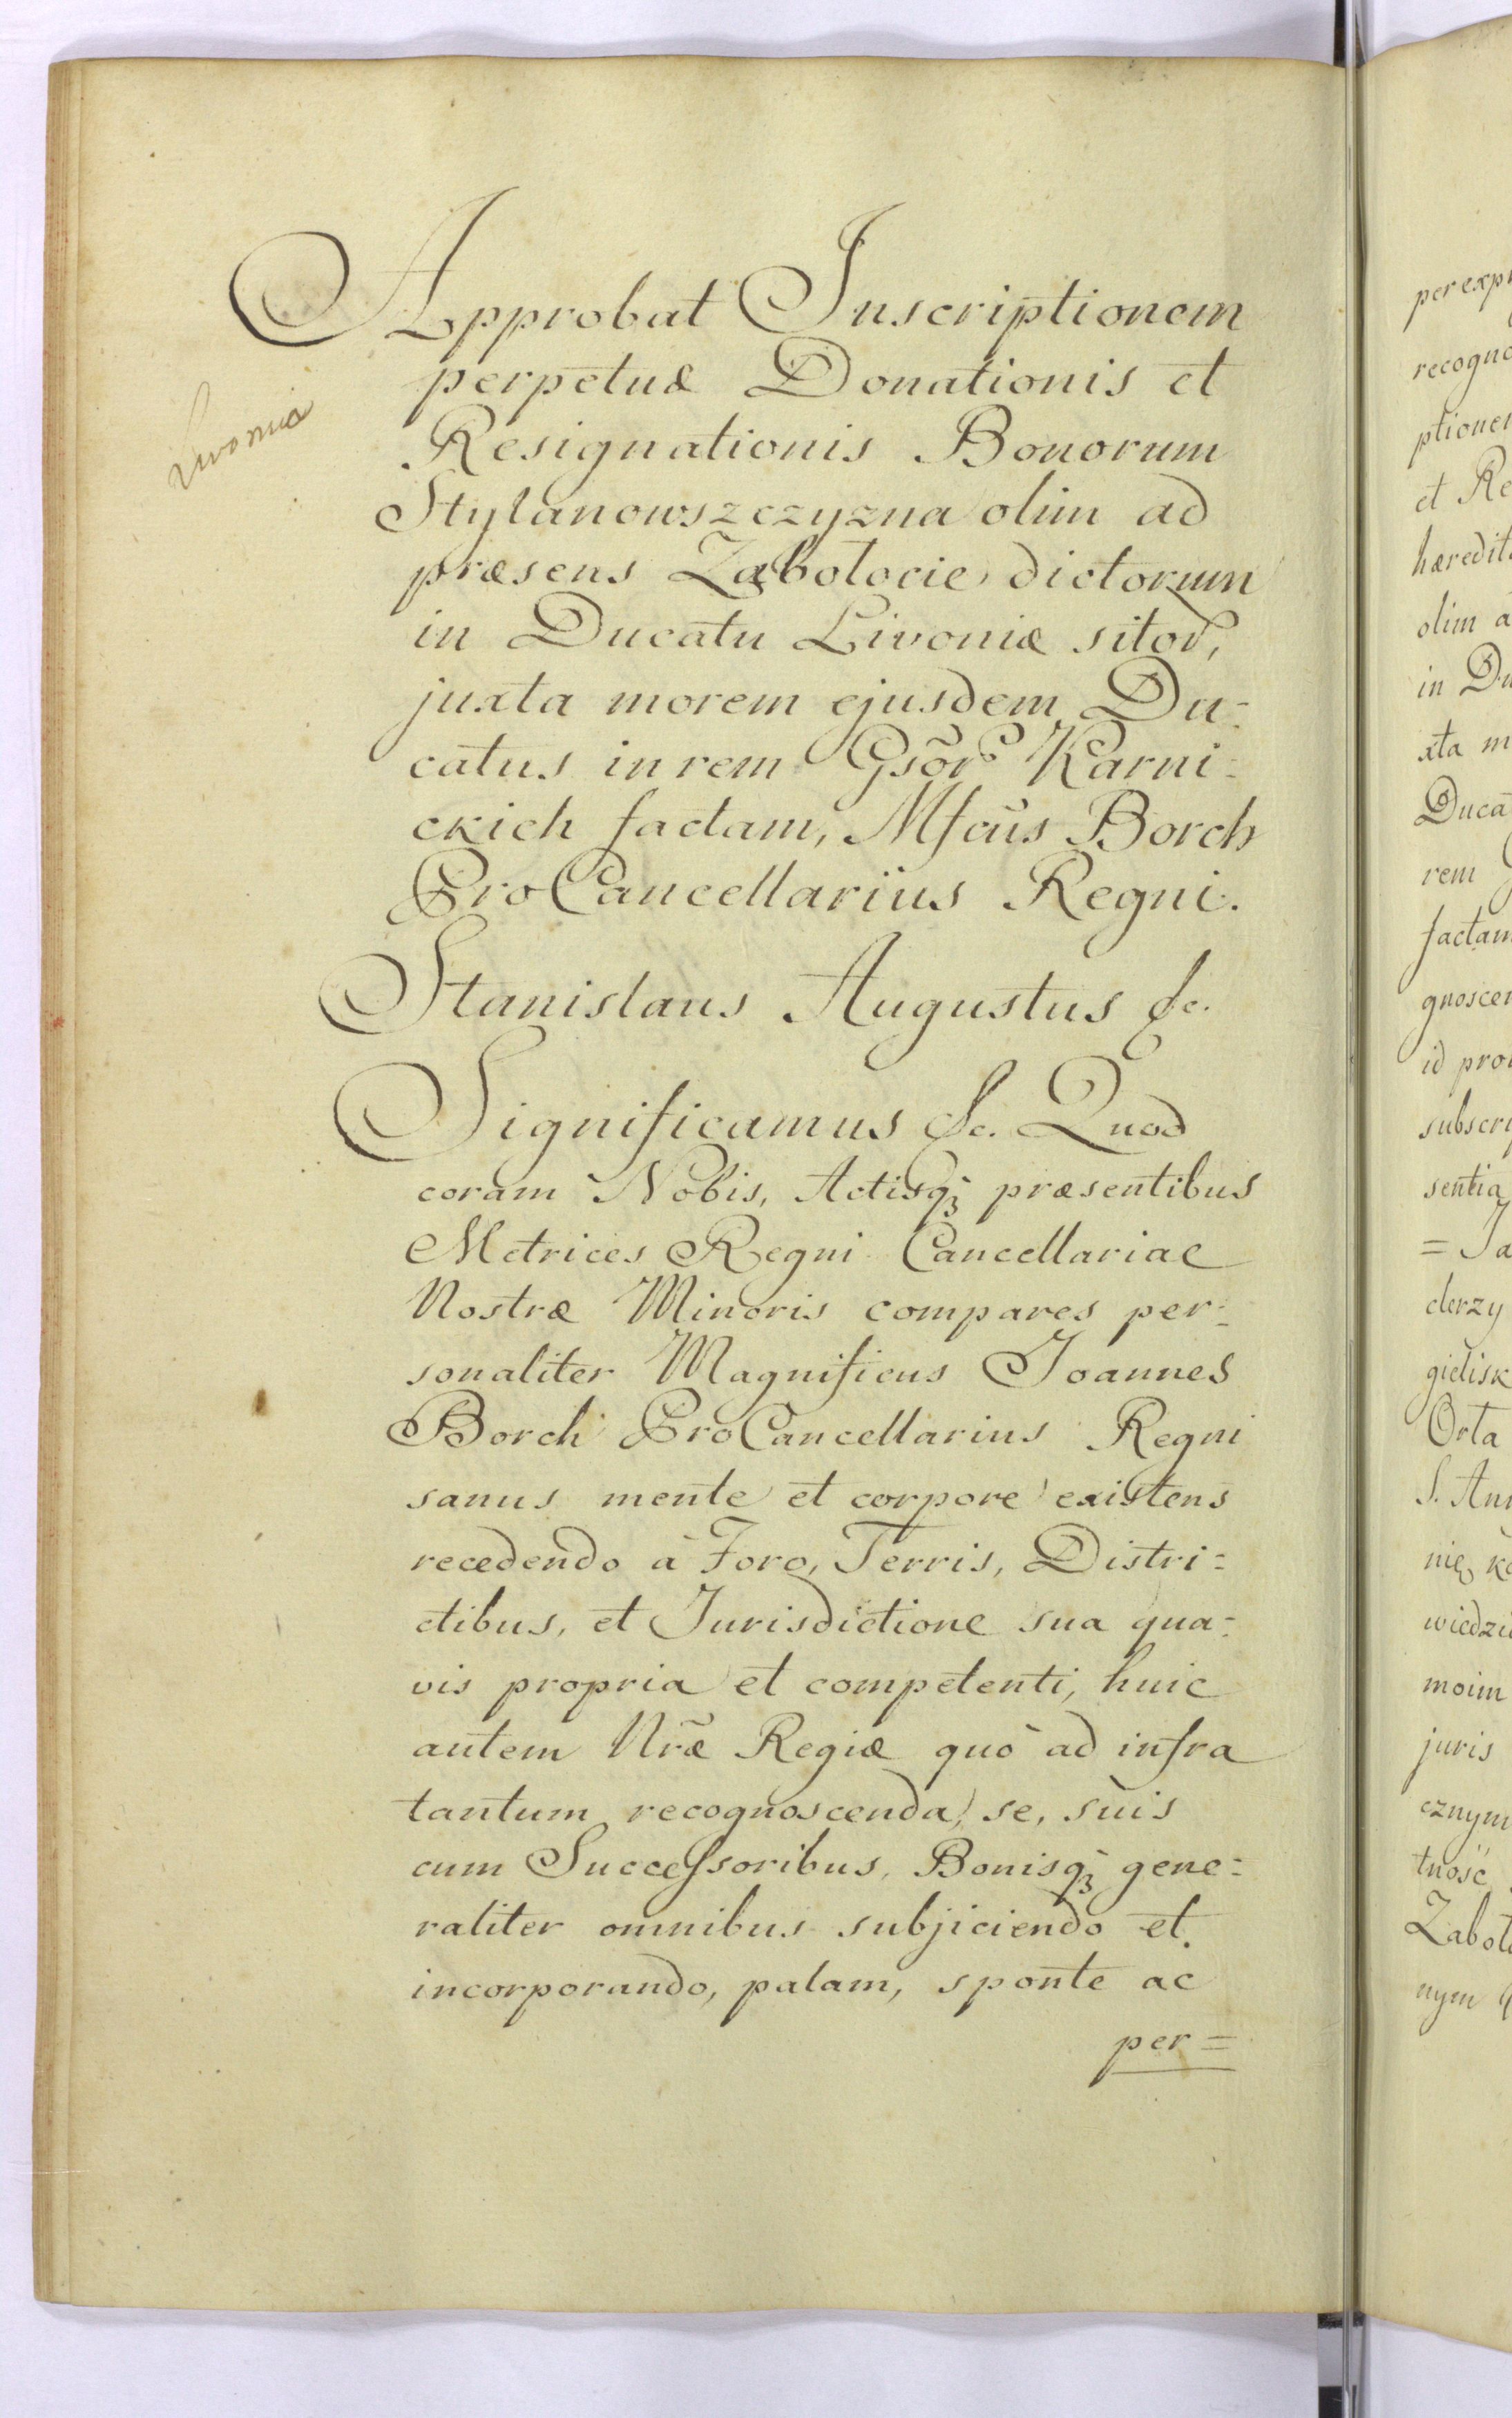 Livonia
Approbat Inscriptionem
perpetuæ Donationis et
Resignationis Bonorum
Stylanowszczyzna olim ad
præsens Zabołocie dictorum
in Ducatu Livoniæ sitor,
juxta morem ejusdem Du=
catus in rem Gsõr Karni=
ckich factam, Mfcũs Borch
ProCancellarius Regni.
Stanislaus Augustus &c.
Significamus &c. Quod
coram Nobis, Actisqꝫ præsentibus
Metrices Regni Cancellariae
Nostræ Minoris compares per=
sonaliter Magnificus Joannes
Borch ProCancellarius Regni
sanus mente et corpore existens
recedendo à Foro, Terris, Distri=
ctibus, et Jurisdictione sua qua=
vis propria et competenti, huic
autem Nr̃æ Regiæ quò ad infra
tantum recognoscenda, se, suis
cum Succeſsoribus, Bonisqꝫ gene=
raliter omnibus subjiciendo et
incorporando, palam, sponte ac
per=
per exp
recogno
ptionem
et Re
hæredit
olim a
in Du
xta m
Duca
rem
factam
gnoscen
id pro
subscri
sentia
= Ja
derzy
gielisk
Orta
S. Ann
nię ko
wiedzi
moim
juris
cznym
tność
Zaboło
nym